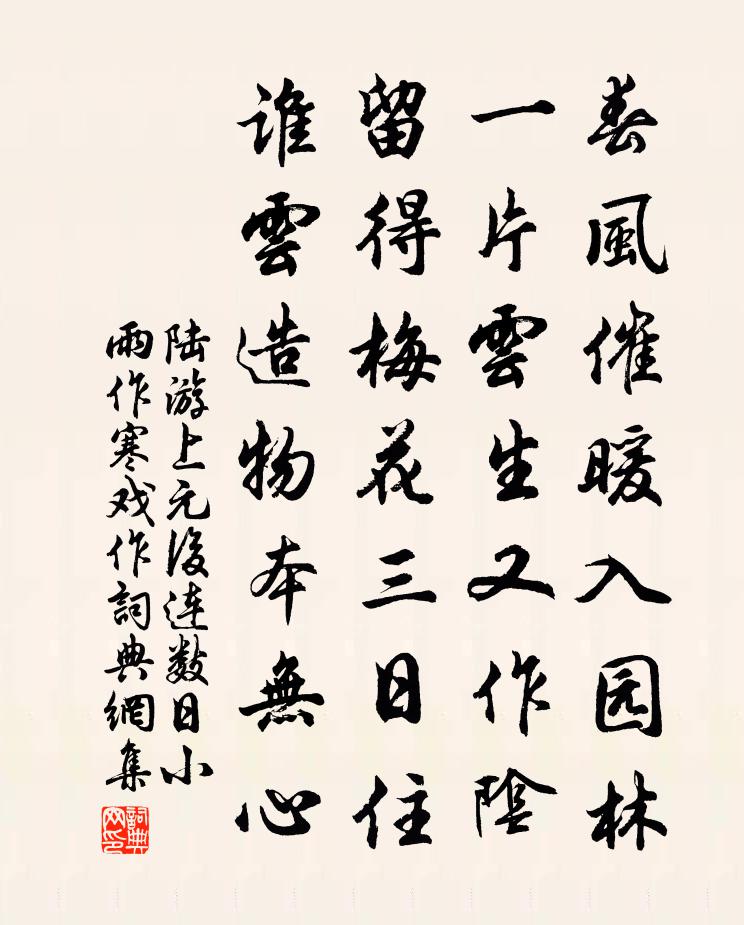 春風催暖入园林
一片雲生又作陰
留得梅花三日住
誰雲造物本無心
陆游上元後连数日小
雨作寒戏作詞典網集
詞典网印